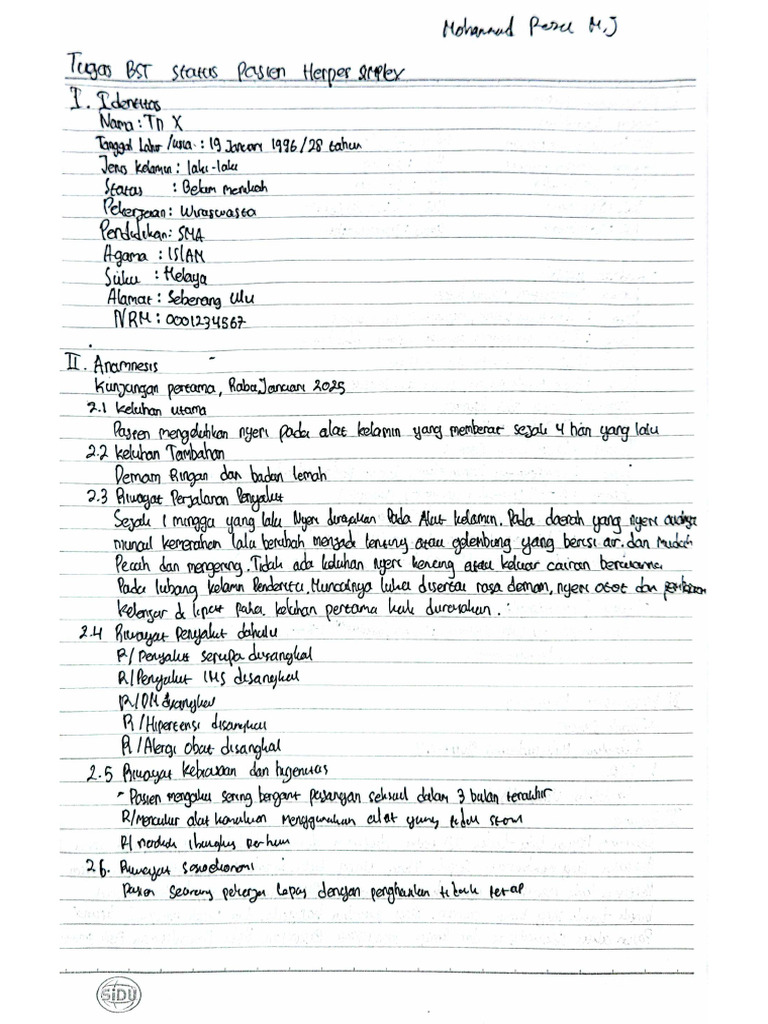 Mohammad Reza M.J
Tugas BST Status Pasien Herpes Simplex
I. Identitas
Nama : Tn X
Tanggal Lahir /usia : 19 Januari 1996/28 tahun
Jenis Kelamin : laki-laki
Status : Belum menikah
Pekerjaan : Wiraswasta
Pendidikan : SMA
Agama : ISLAM
Suku : Melayu
Alamat : Seberang Ulu
NRM : 0001234567
II. Anamnesis
Kunjungan pertama, Rabu, Januari 2025
2.1 Keluhan utama
Pasien mengeluhkan nyeri pada alat kelamin yang memberat sejak 4 hari yang lalu
2.2 Keluhan Tambahan
Demam Ringan dan badan lemah
2.3 Riwayat Perjalanan Penyakit
Sejak 1 minggu yang lalu Nyeri dirasakan Pada Alat kelamin. Pada daerah yang nyeri awalnya
muncul kemerahan lalu berubah menjadi lenting atau gelembung yang berisi air. dan mudah
Pecah dan mengering. Tidak ada keluhan nyeri kencing atau keluar cairan berwarna
Pada lubang kelamin Penderita. Munculnya luka disertai rasa demam, nyeri otot dan
kelenjar di lipat paha. keluhan pertama kali dirasakan.
2.4 Riwayat Penyakit dahulu
R/ Penyakit serupa disangkal
R/ Penyakit IMS disangkal
R/ DM disangkal
R/ Hipertensi disangkal
R/ Alergi obat disangkal
2.5 Riwayat Kebiasaan dan higienitas
- Pasien mengaku sering berganti pasangan seksual dalam 3 bulan terakhir
R/ Mencukur alat kemaluan menggunakan alat yang tidak steril
R/ merokok 1 bungkus perhari
2.6. Riwayat sosioekonomi
Pasien seorang pekerja lepas dengan penghasilan tidak tetap
SiDU